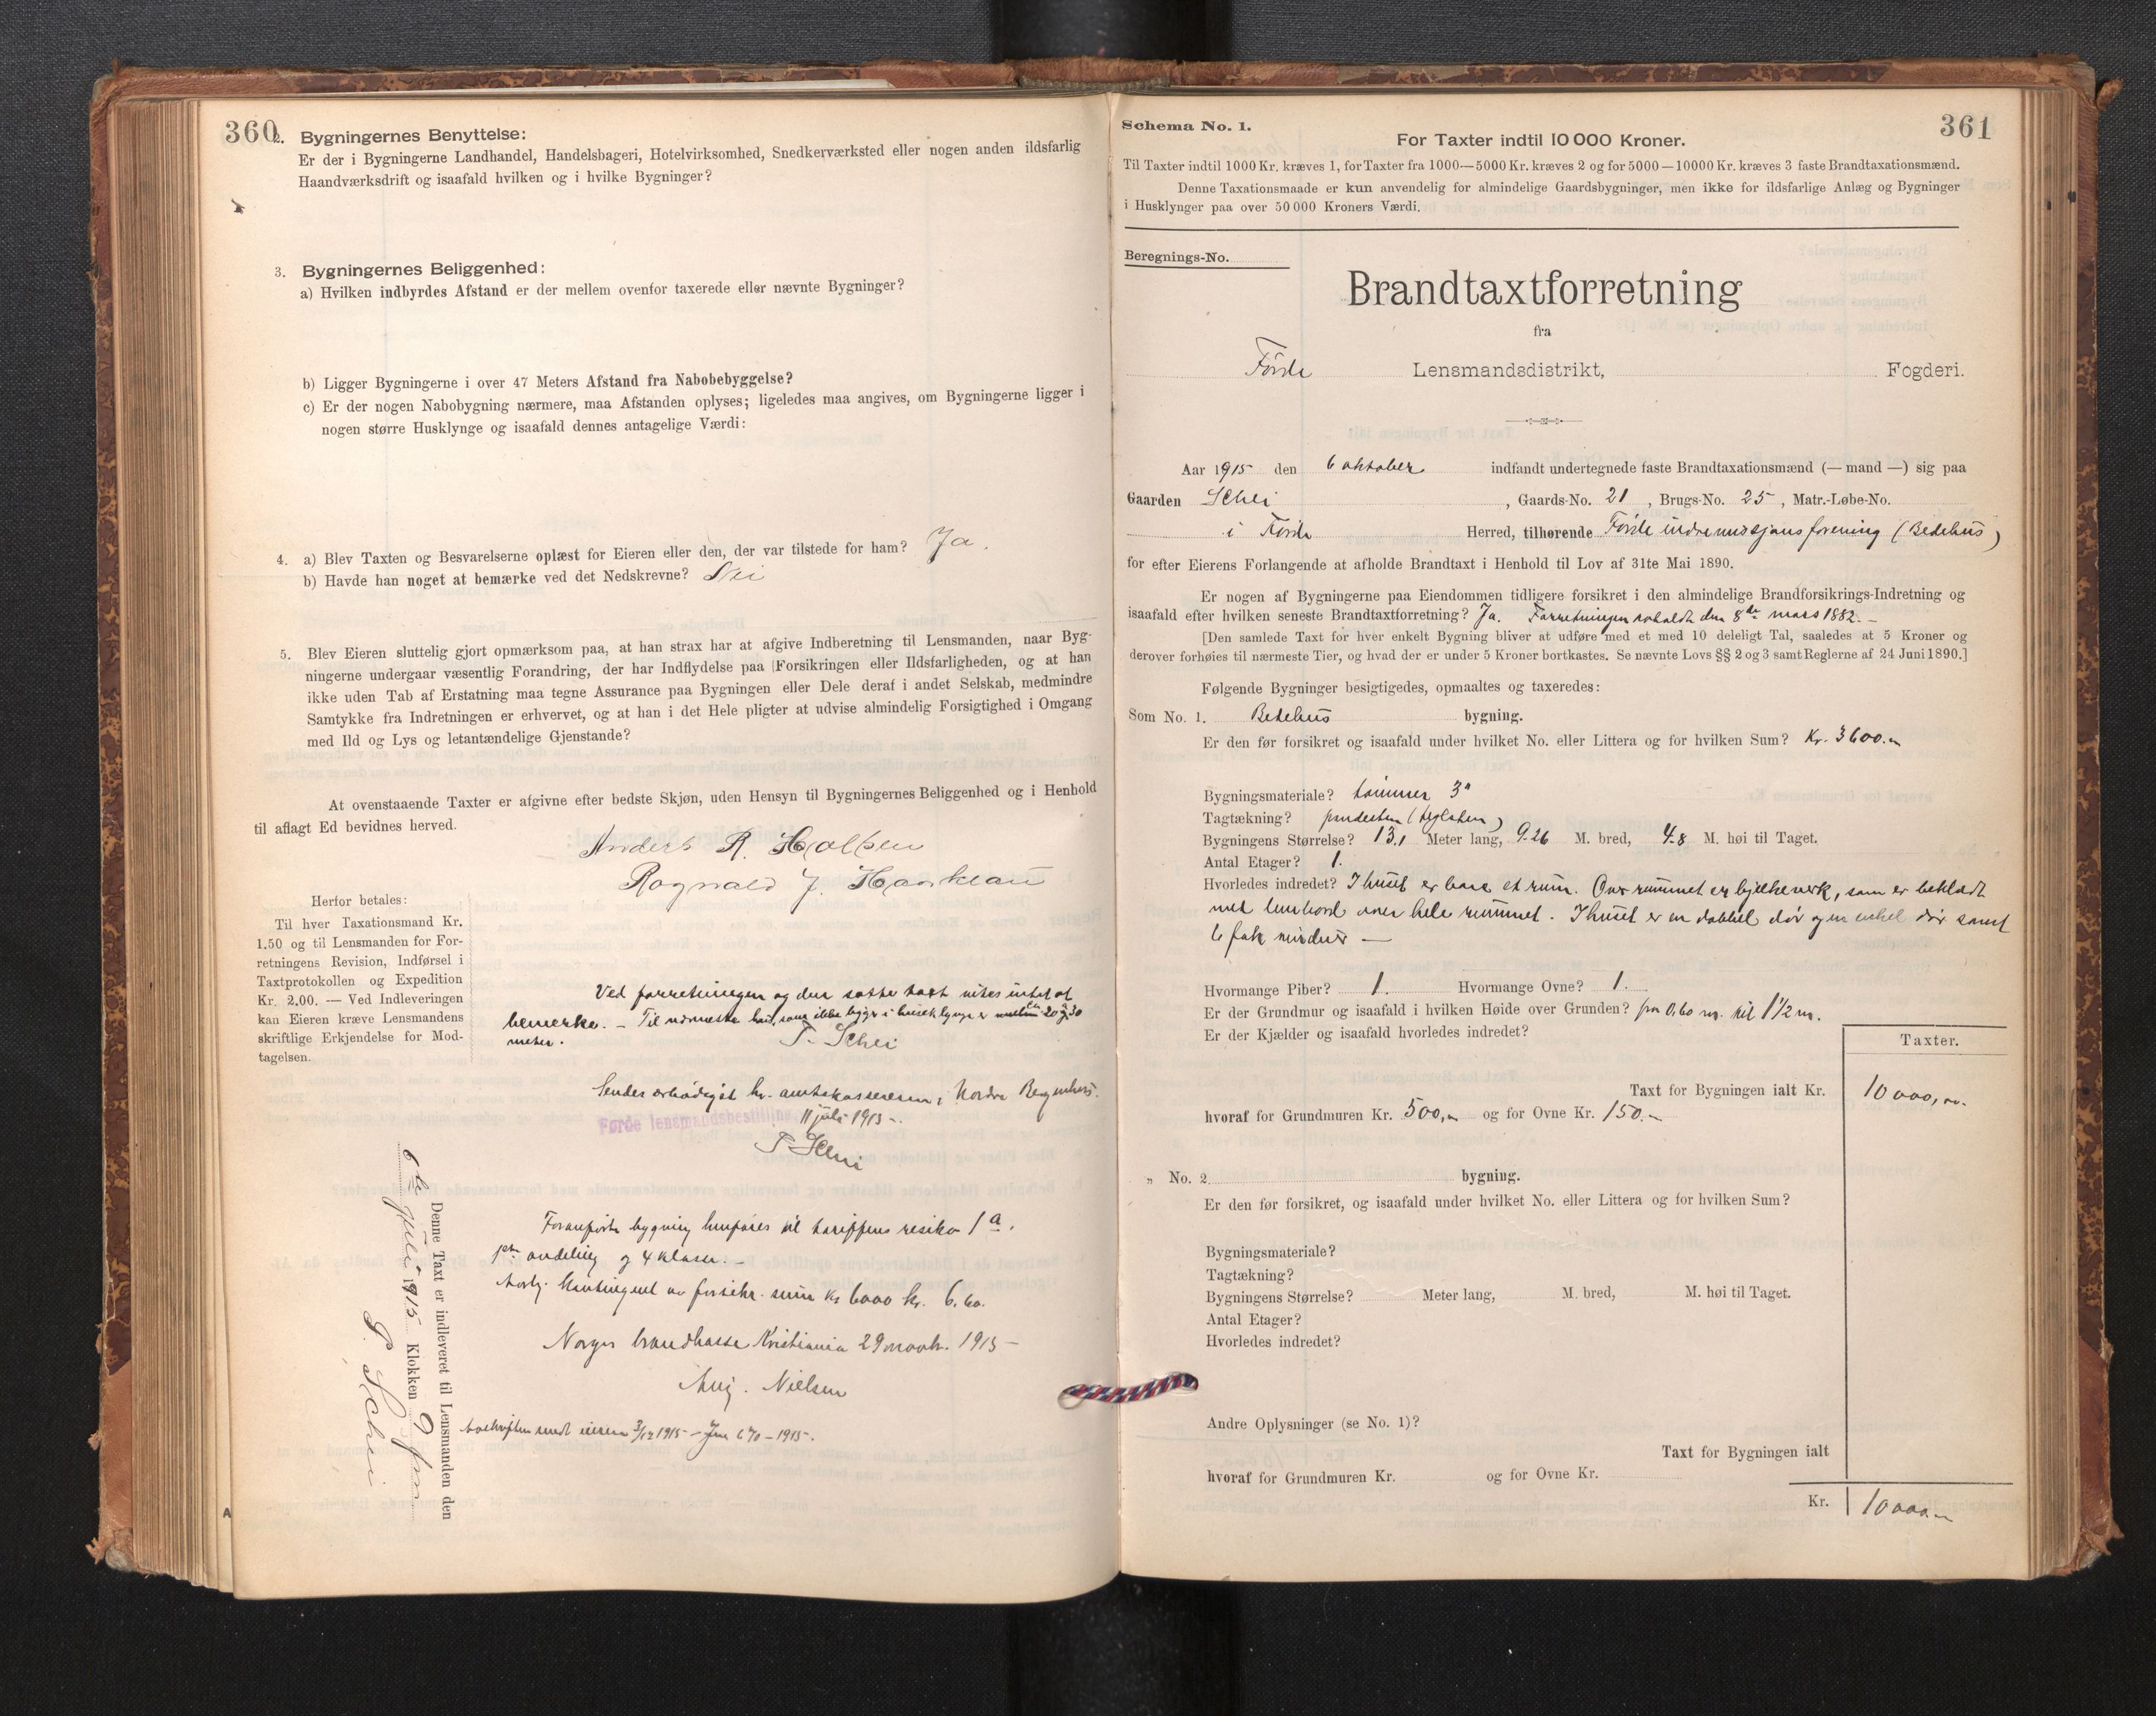 360
2. Bygningernes Benyttelse:
Er der i Bygningerne Landhandel, Handelsbageri, Hotelvirksomhed, Snedkerværksted eller nogen anden ildsfarlig
Haandværksdrift og isaafald hvilken og i hvilke Bygninger?
3. Bygningernes Beliggenhed:
a) Hvilken indbyrdes Afstand er der mellem ovenfor taxerede eller nævnte Bygninger?
b) Ligger Bygningerne i over 47 Meters Afstand fra Nabobebyggelse?
c) Er der nogen Nabobygning nærmere, maa Afstanden oplyses; ligeledes maa angives, om Bygningerne ligger i
nogen større Husklynge og isaafald dennes antagelige Værdi:
4. a) Blev Taxten og Besvarelserne oplæst for Eieren eller den, der var tilstede for ham? Ja.
b) Havde han noget at bemærke ved det Nedskrevne? Nei
5. Blev Eieren sluttelig gjort opmærksom paa, at han strax har at afgive Indberetning til Lensmanden, naar Byg-
ningerne undergaar væsentlig Forandring, der har Indflydelse paa Forsikringen eller Ildsfarligheden, og at han
ikke uden Tab af Erstatning maa tegne Assurance paa Bygningen eller Dele deraf i andet Selskab, medmindre
Samtykke fra Indretningen er erhvervet, og at han i det Hele pligter at udvise almindelig Forsigtighed i Omgang
med Ild og Lys og letantændelige Gjenstande?
At ovenstaaende Taxter er afgivne efter bedste Skjøn, uden Hensyn til Bygningernes Beliggenhed og i Henhold
til aflagt Ed bevidnes herved.
Anders R. Halsen
Ragnald J.
Herfor betales:
Til hver Taxationsmand Kr.
1.50 og til Lensmanden for For-
retningens Revision, Indførsel i
Taxtprotokollen og Expedition
Kr. 2.00. — Ved Indleveringen
kan Eieren kræve Lensmandens
skriftlige Erkjendelse for Mod-
tagelsen.
Ved forretningen og den satte taxt vites intet at
bemerke. – Til nærmeste hus, som ikke ligger i husklynge er mellem 20 og 30
meter.
S. Schei
Sendes ærbødigst hr. amtskassereren i Nordre Bergenhus.
Førde lensmandsbestilling 11 juli 1915.
S Schei
Foranførte bygning henføres til tariffens resiko 1 a.
1ste avdeling og 4 klasse. –
Aarlig kontingent av forsikr. sum kr 6000 kr. 6.60.
Norges brandkasse Kristiania 29 novbr. 1915 –
Aug. Nielsen
Avskriften sendt eieren 3/12 1915 – Jnr 670 – 1915.
Denne Taxt er indleveret til Lensmanden den
6 te juli 1915 Klokken 9 fm
S. Schei
361
Schema No. 1.
For Taxter indtil 10 000 Kroner.
Til Taxter indtil 1000 Kr. kræves 1, for Taxter fra 1000—5000 Kr. kræves 2 og for 5000—10000 Kr. kræves 3 faste Brandtaxationsmænd.
Denne Taxationsmaade er kun anvendelig for almindelige Gaardsbygninger, men ikke for ildsfarlige Anlæg og Bygninger
i Husklynger paa over 50 000 Kroners Værdi.
Beregnings-No.
Brandtaxtforretning
fra
Førde Lensmandsdistrikt, Fogderi.
Aar 1915 den 6 oktober indfandt undertegnede faste Brandtaxationsmænd (— mand —) sig paa
Gaarden Schei, Gaards-No. 21, Brugs-No. 25, Matr.-Løbe-No.
i Førde Herred, tilhørende Førde indremissjonsforening (Bedehus)
for efter Eierens Forlangende at afholde Brandtaxt i Henhold til Lov af 31te Mai 1890.
Er nogen af Bygningerne paa Eiendommen tidligere forsikret i den almindelige Brandforsikrings-Indretning og
isaafald efter hvilken seneste Brandtaxtforretning? Ja. Forretningen avholdt den 8de mars 1882. –
[Den samlede Taxt for hver enkelt Bygning bliver at udføre med et med 10 deleligt Tal, saaledes at 5 Kroner og
derover forhøies til nærmeste Tier, og hvad der er under 5 Kroner bortkastes. Se nævnte Lovs §§ 2 og 3 samt Reglerne af 24 Juni 1890.]
Følgende Bygninger besigtigedes, opmaaltes og taxeredes:
Som No. 1. Bedehus bygning.
Er den før forsikret og isaafald under hvilket No. eller Littera og for hvilken Sum? Kr. 3600.
Bygningsmateriale? tømmer 3"
Tagtækning? (teglsten)
Bygningens Størrelse? 13,1 Meter lang, 9.26 M. bred, 4.8 M. høi til Taget.
Antal Etager? 1.
Hvorledes indredet? I huset er bare et rum. Over rummet er bjelkeverk, som er beklædt
med bord over hele rummet. I huset er en dobbel dør og en enkel dør samt
6 fak vinduer —
Hvormange Piber? 1. Hvormange Ovne? 1.
Er der Grundmur og isaafald i hvilken Høide over Grunden? fra 0,60 m. til 1 1/2 m.
Er der Kjælder og isaafald hvorledes indredet?
Taxter.
Taxt for Bygningen ialt Kr. 10 000,00.
hvoraf for Grundmuren Kr. 500, og for Ovne Kr. 150.
„ No. 2 bygning.
Er den før forsikret, og isaafald under hvilket No. eller Littera og for hvilken Sum?
Bygningsmateriale?
Tagtækning?
Bygningens Størrelse? Meter lang, M. bred, M. høi til Taget.
Antal Etager?
Hvorledes indredet?
Andre Oplysninger (se No. 1)?
Taxt for Bygningen ialt
hvoraf for Grundmuren Kr. og for Ovne Kr.
Kr. 10 000.